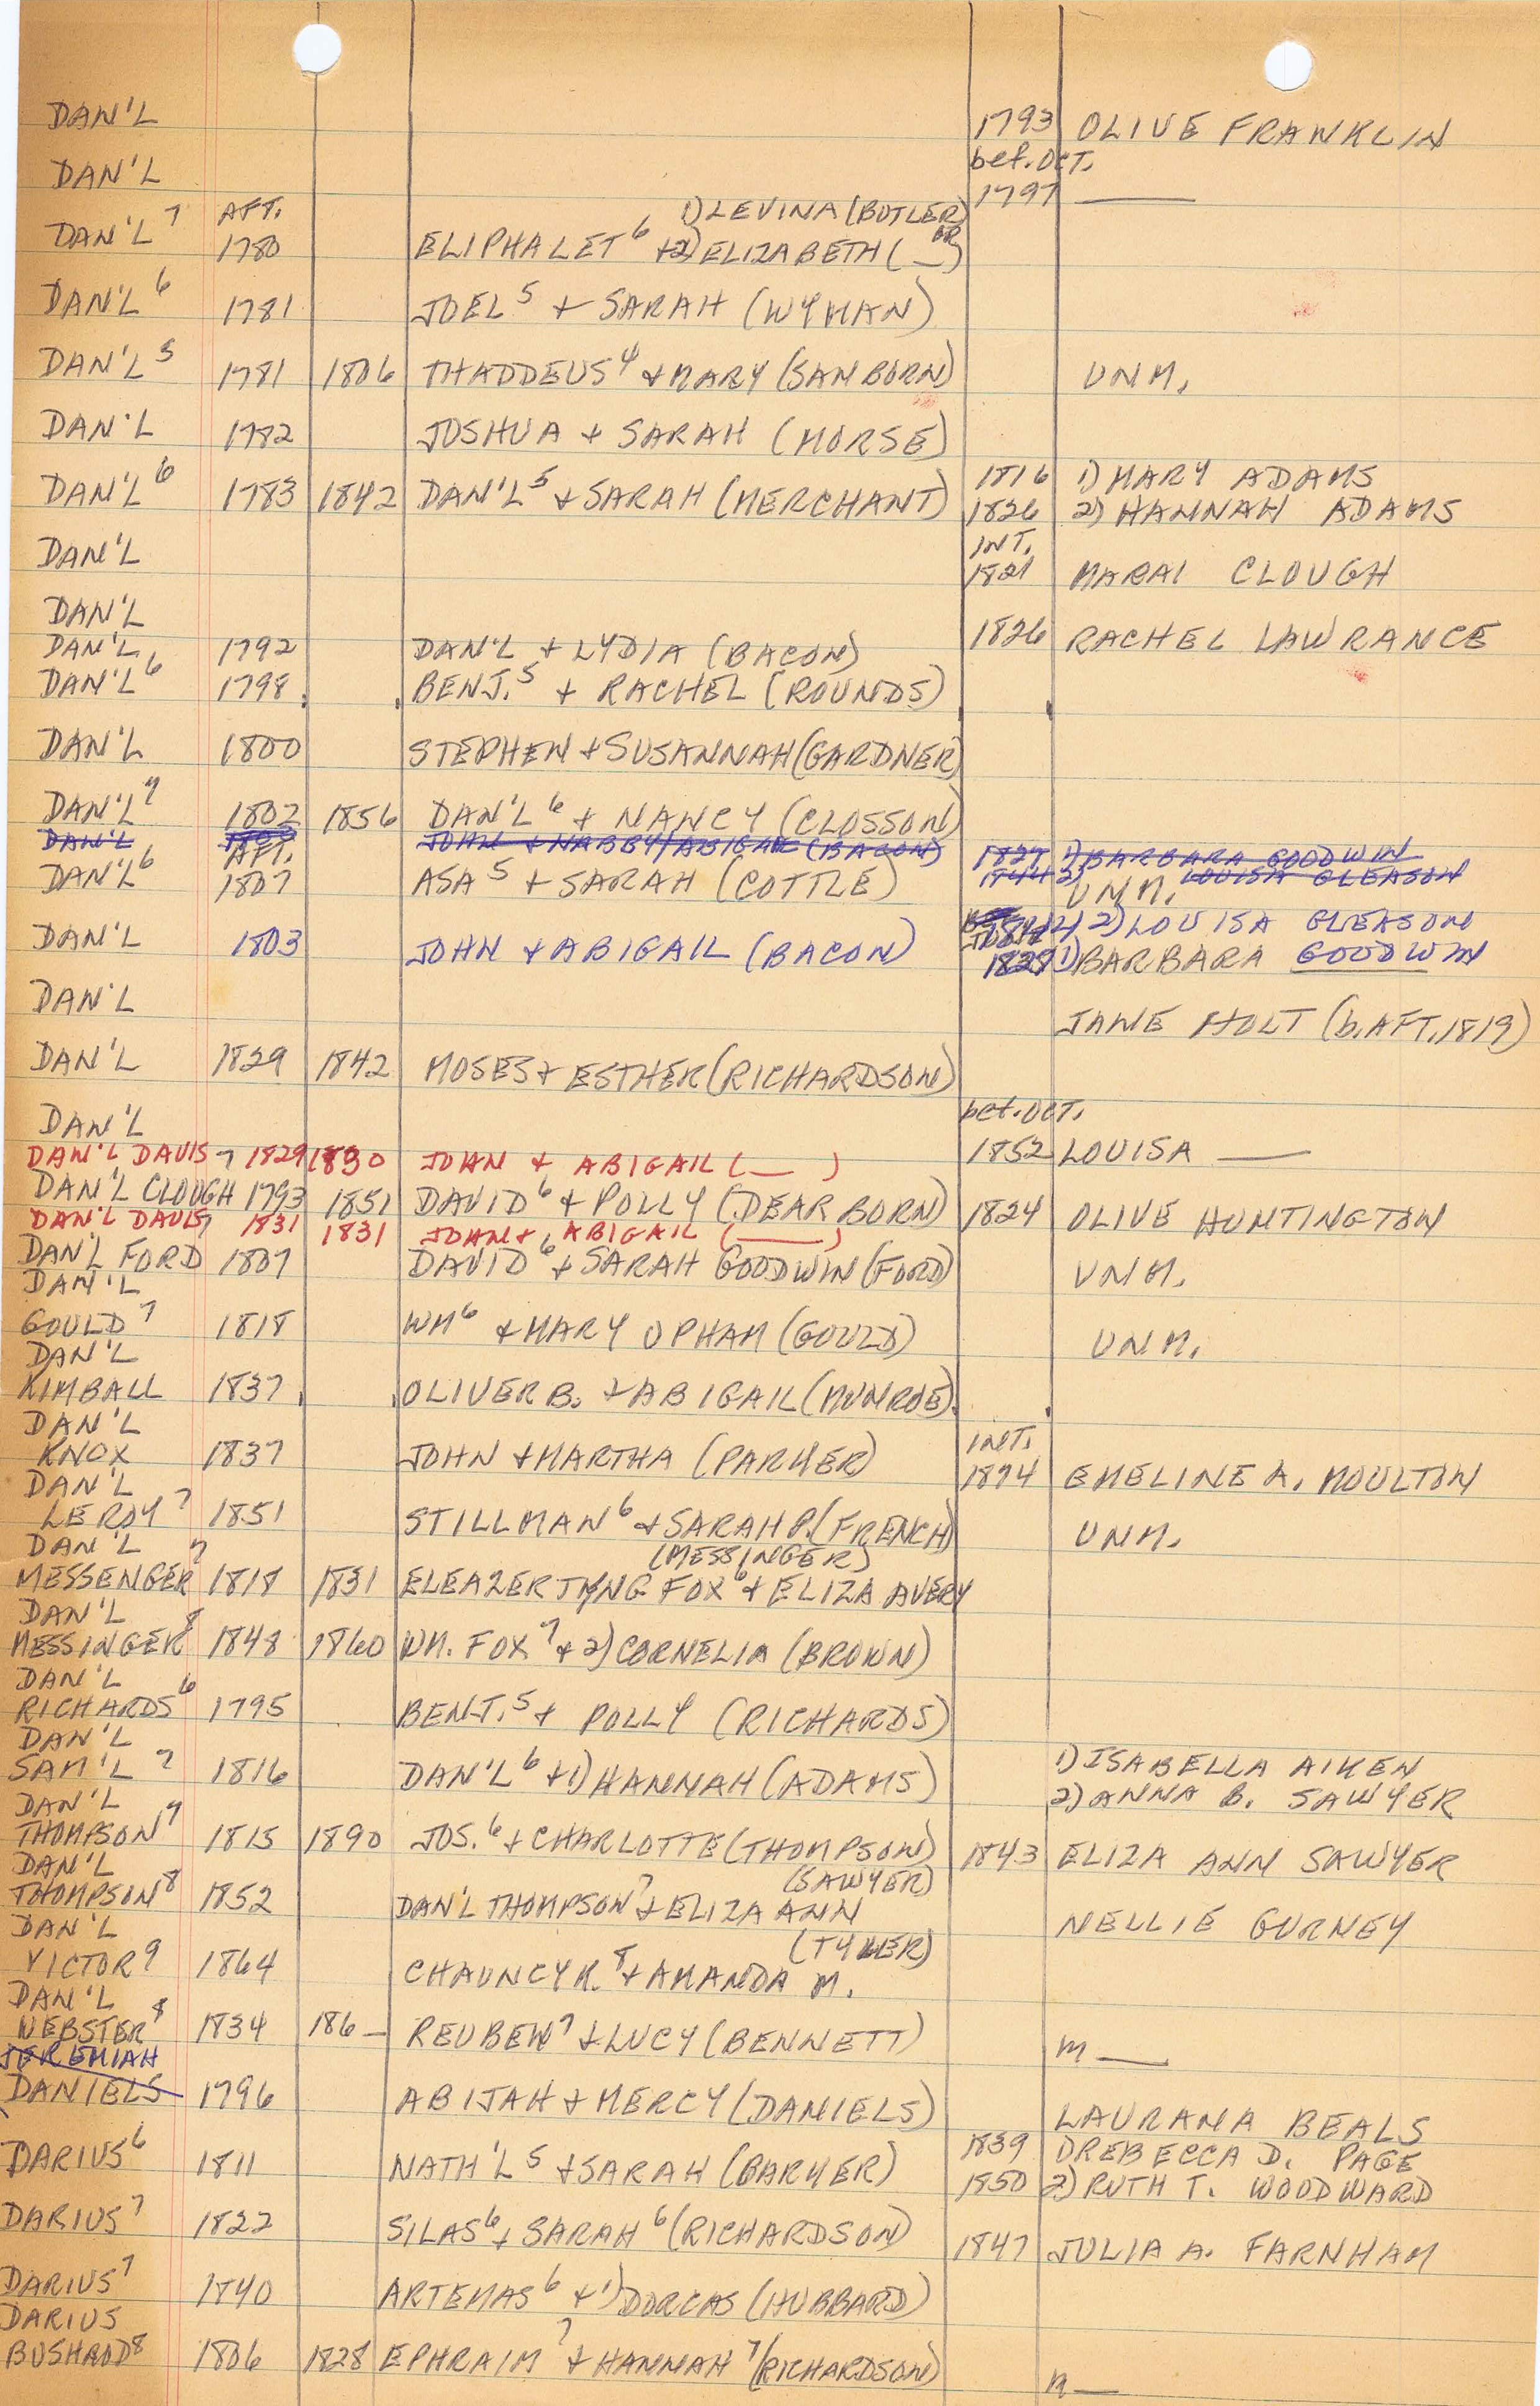 DAN'L 1793 OLIVE FRANKLIN
DAN'L bef. OCT. 1797 —
1) LEVINA (BUTLER)
DAN'L 7 AFT. 1780 ELIPHALET 6 + 2) ELIZABETH ( — ) OR
DAN'L 6 1781 JOEL 5 + SARAH (WYMAN)
DAN'L 5 1781 1806 THADDEUS 4 + MARY (SANBORN) UNM.
DAN'L 1782 JOSHUA + SARAH (MORSE)
1816 1) MARY ADAMS
DAN'L 6 1783 1842 DAN'L 5 + SARAH (MERCHANT) 1826 2) HANNAH ADAMS
DAN'L INT. 1821 MARAI CLOUGH
DAN'L 1826 RACHEL LAWRANCE
DAN'L 1792 DAN'L + LYDIA (BACON)
DAN'L 6 1798 BENJ. 5 + RACHEL (ROUNDS)
DAN'L 1800 STEPHEN + SUSANNAH (GARDNER)
DAN'L 7 1802 1856 DAN'L 6 + NANCY (CLOSSON)
DAN'L JOHN + NABBY/ABIGAIL (BACON) 1827 1) BARBARA GOODWIN
1844 2) LOUISA GLEASON
DAN'L 6 AFT. 1807 ASA 5 + SARAH (COTTLE) UNM.
2) LOUISA GLEASON
DAN'L 1803 JOHN + ABIGAIL (BACON) 1828 1) BARBARA GOODWIN
DAN'L JANE HOLT (b. AFT. 1819)
DAN'L 1829 1842 MOSES + ESTHER (RICHARDSON)
DAN'L bef. OCT. 1852 LOUISA —
DAN'L DAVIS 7 1829 1830 JOHN + ABIGAIL ( — )
DAN'L CLOUGH 1793 1851 DAVID 6 + POLLY (DEARBORN) 1824 OLIVE HUNTINGTON
DAN'L DAVIS 7 1831 1831 JOHN + ABIGAIL ( — )
DAN'L FORD 1807 DAVID 6 + SARAH GOODWIN (FORD) UNM.
DAN'L
GOULD 7 1818 WM 6 + MARY UPHAM (GOULD) UNM.
DAN'L
KIMBALL 1837 OLIVER B. + ABIGAIL (MUNROE)
DAN'L INT.
KNOX 1837 JOHN + MARTHA (PARKER) 1874 EMELINE A. MOULTON
DAN'L
LEROY 7 1851 STILLMAN 6 + SARAH P. (FRENCH) UNM.
DAN'L (MESSINGER)
MESSENGER 7 1818 1831 ELEAZER TYNG FOX 6 + ELIZA AVERY
DAN'L
MESSINGER 8 1848 1860 WM. FOX 7 + 2) CORNELIA (BROWN)
DAN'L
RICHARDS 6 1795 BENJ. 5 + POLLY (RICHARDS)
DAN'L 1) ISABELLA AIKEN
SAM'L 7 1816 DAN'L 6 + 1) HANNAH (ADAMS) 2) ANNA B. SAWYER
DAN'L
THOMPSON 7 1815 1890 JOS. 6 + CHARLOTTE (THOMPSON) 1843 ELIZA ANN SAWYER
DAN'L (SAWYER)
THOMPSON 8 1852 DAN'L THOMPSON 7 + ELIZA ANN NELLIE GURNEY
DAN'L (TYLER)
VICTOR 9 1864 CHAUNCY K. 8 + AMANDA M.
DAN'L
WEBSTER 8 1834 186— REUBEN 7 + LUCY (BENNETT) m —
JEREMIAH
DANIELS 1796 ABIJAH + MERCY (DANIELS) LAURANA BEALS
1839 1) REBECCA D. PAGE
DARIUS 6 1811 NATH'L 5 + SARAH (BARKER) 1850 2) RUTH T. WOODWARD
DARIUS 7 1822 SILAS 6 + SARAH 6 (RICHARDSON) 1847 JULIA A. FARNHAM
DARIUS 7 1840 ARTEMAS 6 + 1) DORCAS (HUBBARD)
DARIUS
BUSHROD 8 1806 1828 EPHRAIM 7 + HANNAH 7 (RICHARDSON) m —